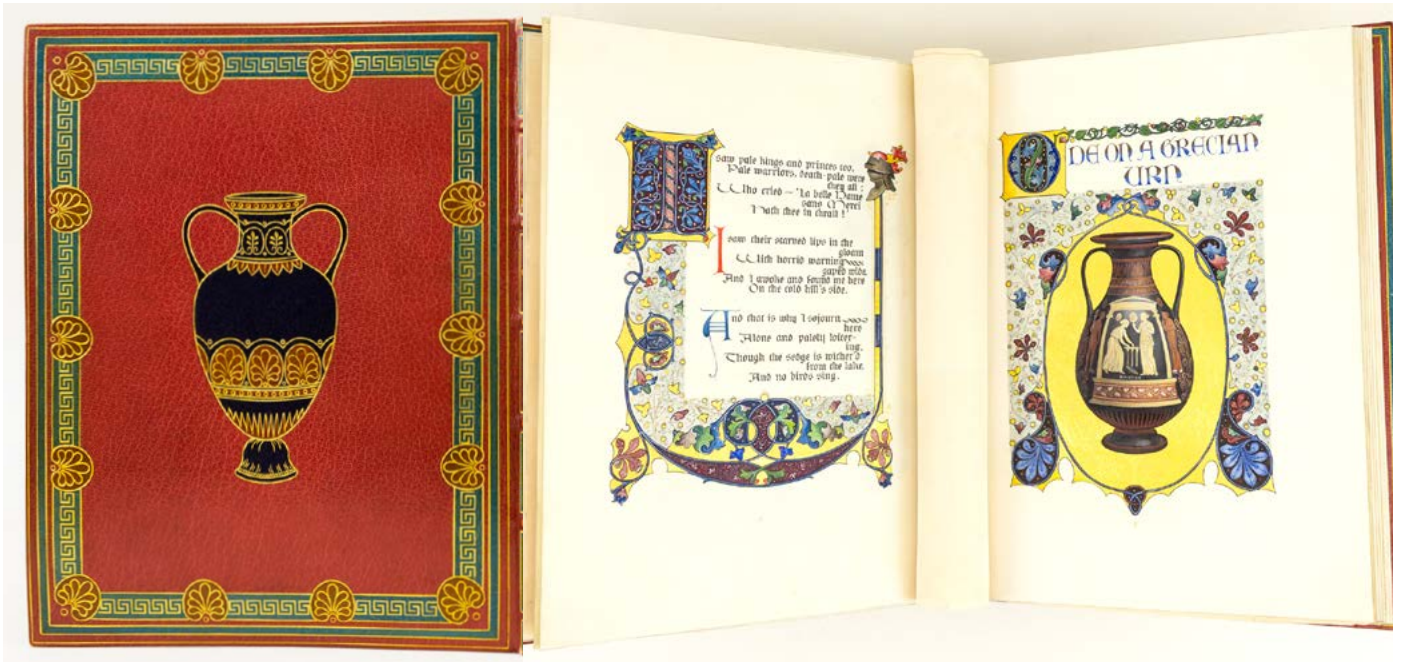 I saw pale kings and princes too,
Pale warriors, death-pale were
they all :
Who cried — 'La belle Dame
sans Merci
Hath thee in thrall !'
I saw their starved lips in the
gloam
With horrid warning
gaped wide,
And I awoke and found me here
On the cold hill's side.
And that is why I sojourn
here
Alone and palely loiter-
ing,
Though the sedge is wither'd
from the lake,
And no birds sing.
ODE ON A GRECIAN
URN